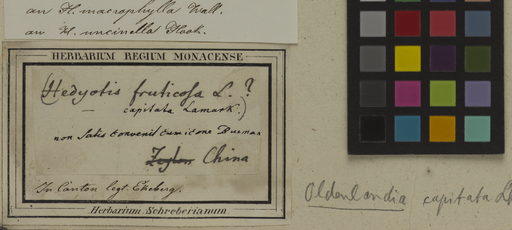 an H. macrophylla Wall.
an H. uncinella Hook.
HERBARIUM REGIUM MONACENSE
(Hedyotis fruticosa L. ?
— capitata Lamark.)
non satis convenit cum icone Burman
Zeylon China
In Canton legt Ekeberg.
Herbarium Schreberianum
Oldenlandia capitata